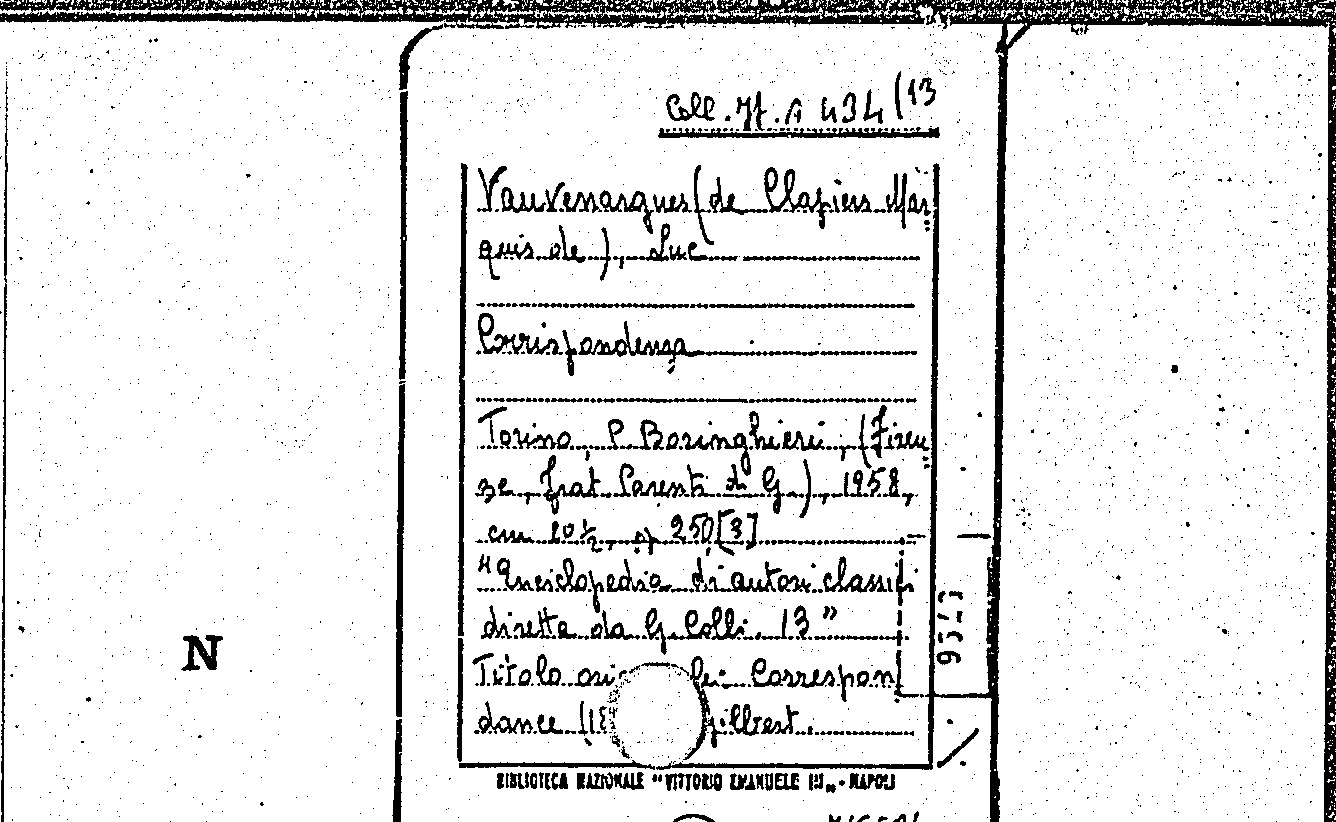 Coll. It. A 434 (13
Vauvenargues (de Clapiers Mar
quis de), Luc
Corrispondenza
Torino, P. Boringhieri, (Firen
ze, frat. Parenti di G.), 1958,
cm 20 ½, p 250 [3]
"Enciclopedia di autori classici
diretta da G. Colli. 13"
Titolo Correspon
dance Gilbert.
N
BIBLIOTECA NAZIONALE "VITTORIO EMANUELE III" - NAPOLI